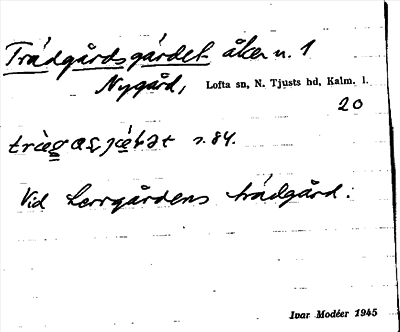 Trädgårdsgärdet åker n. 1
Nygård, Lofta sn, N. Tjusts hd, Kalm. l.
20
s. 84.
Vid herrgårdens trädgård.
Ivar Modéer 1945